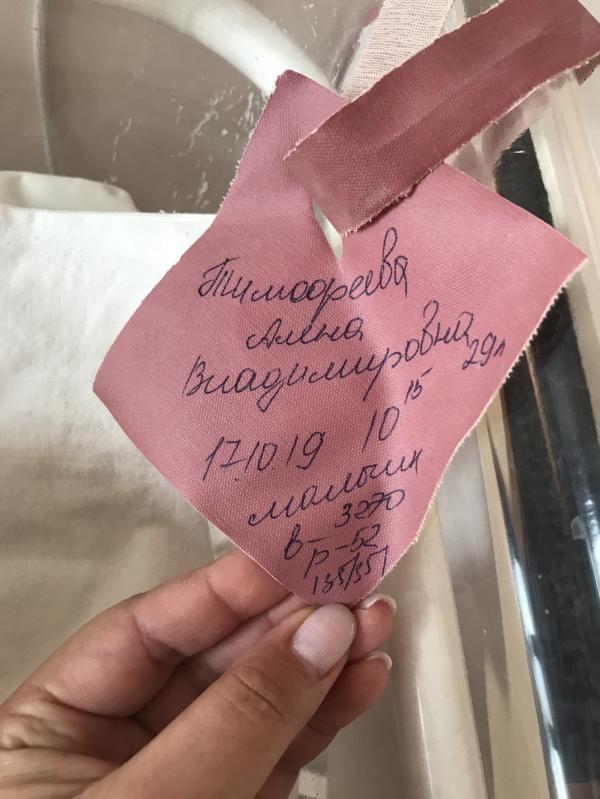 Тимофеева
Алена
Владимировна 29л
17.10.19 10 15
мальчик
в- 3270
р-52